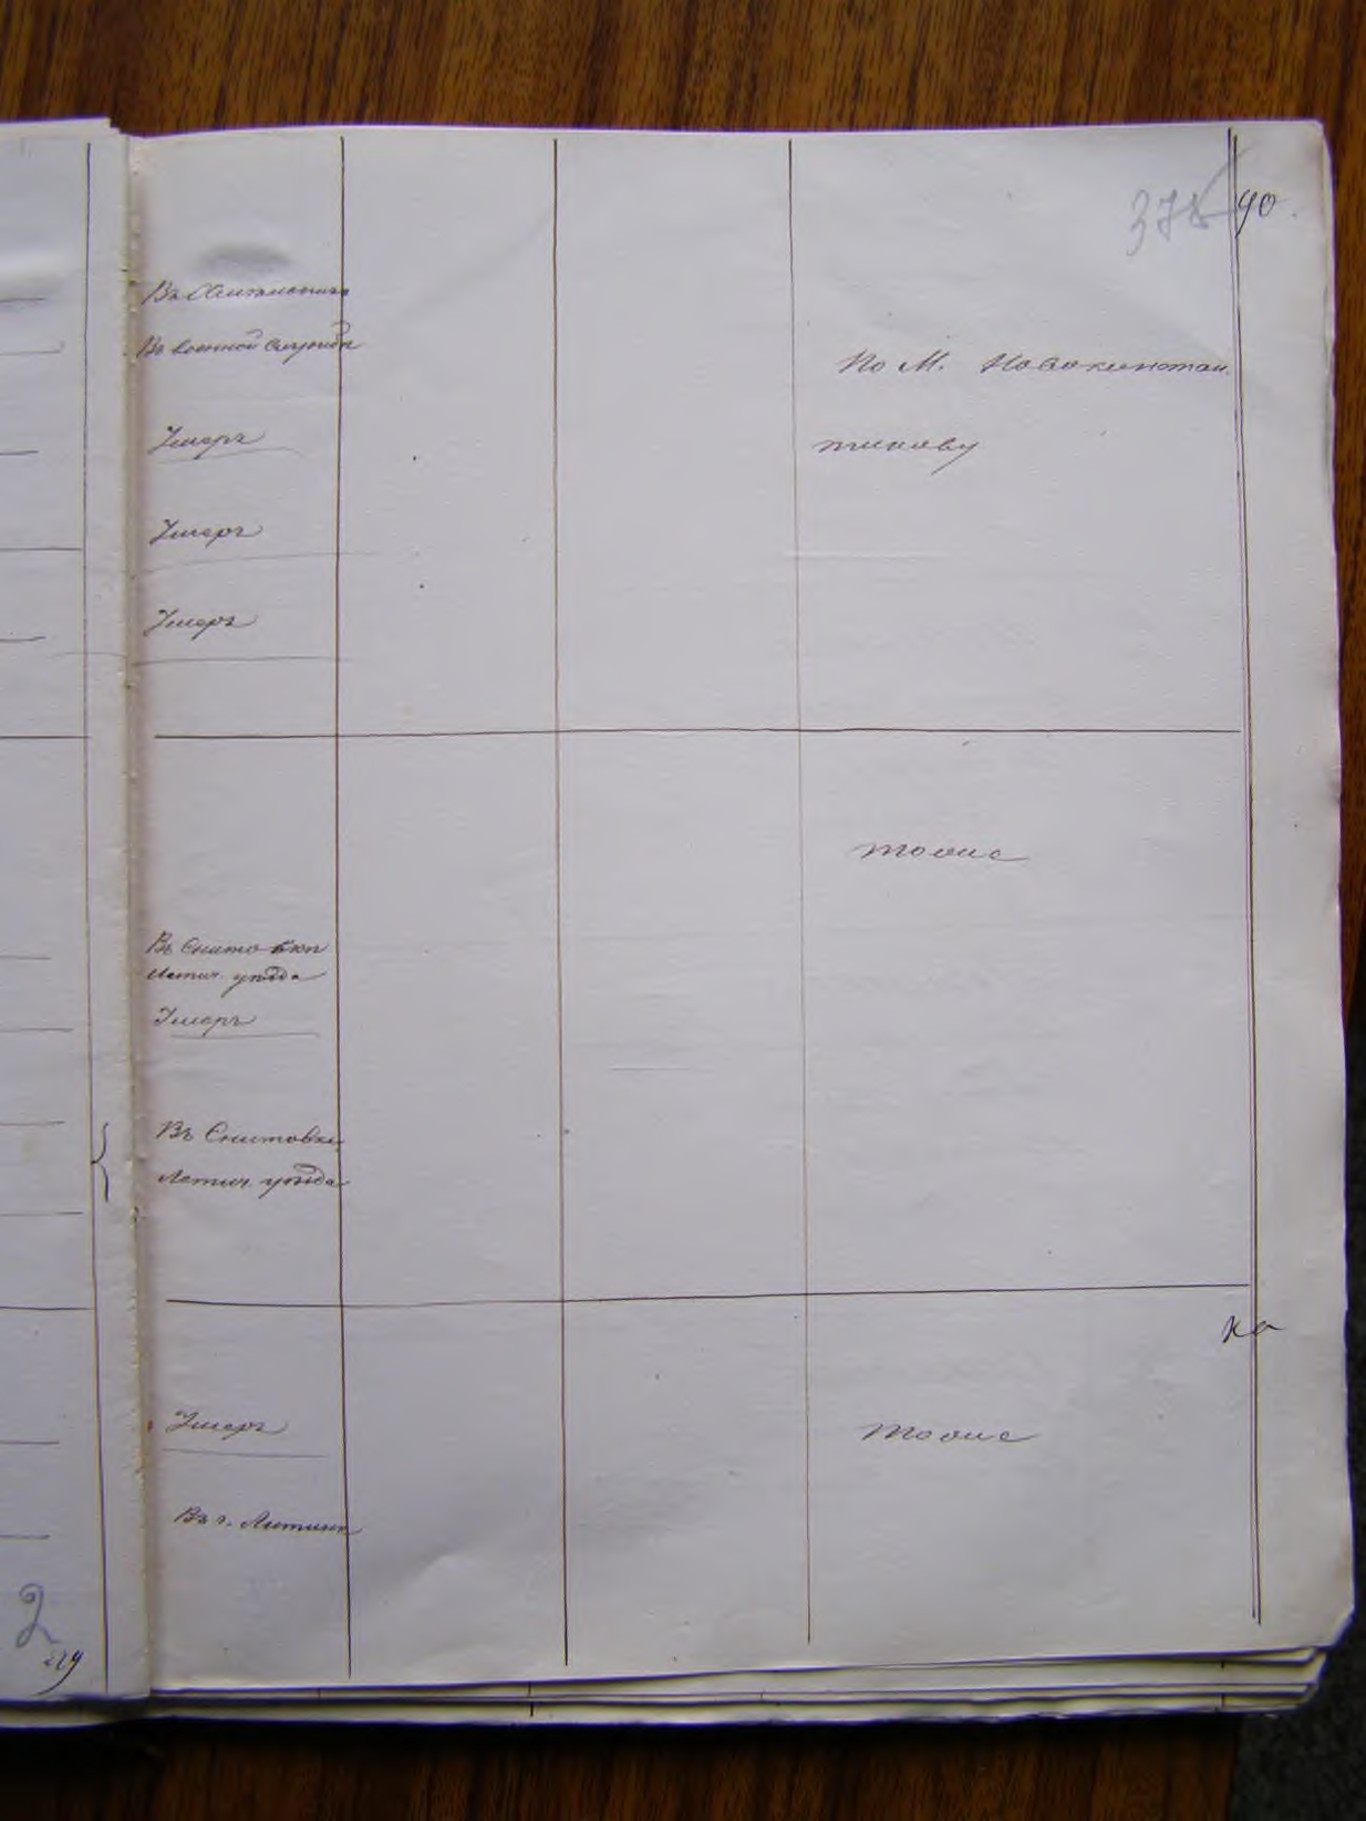 378 90.
Въ
Въ военной службѣ
По М. Новоконстан
Умеръ
тинову
Умеръ
Умеръ
тоже
Въ Снитовкѣ
Летич. уѣзда
Умеръ
Въ Снитовкѣ
Летич. уѣзда
ка
Умеръ
тоже
Въ г. Летичи
2